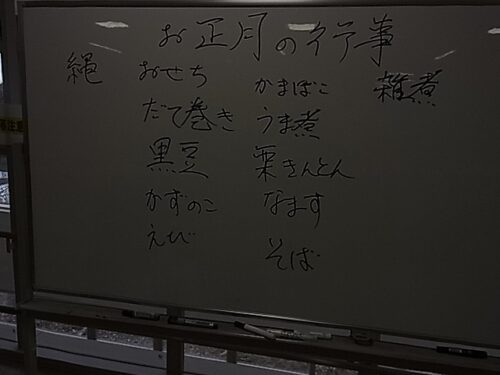 お正月の行事
縄
おせち
だて巻き
黒豆
かずのこ
えび
かまぼこ
うま煮
栗きんとん
なます
そば
雑煮